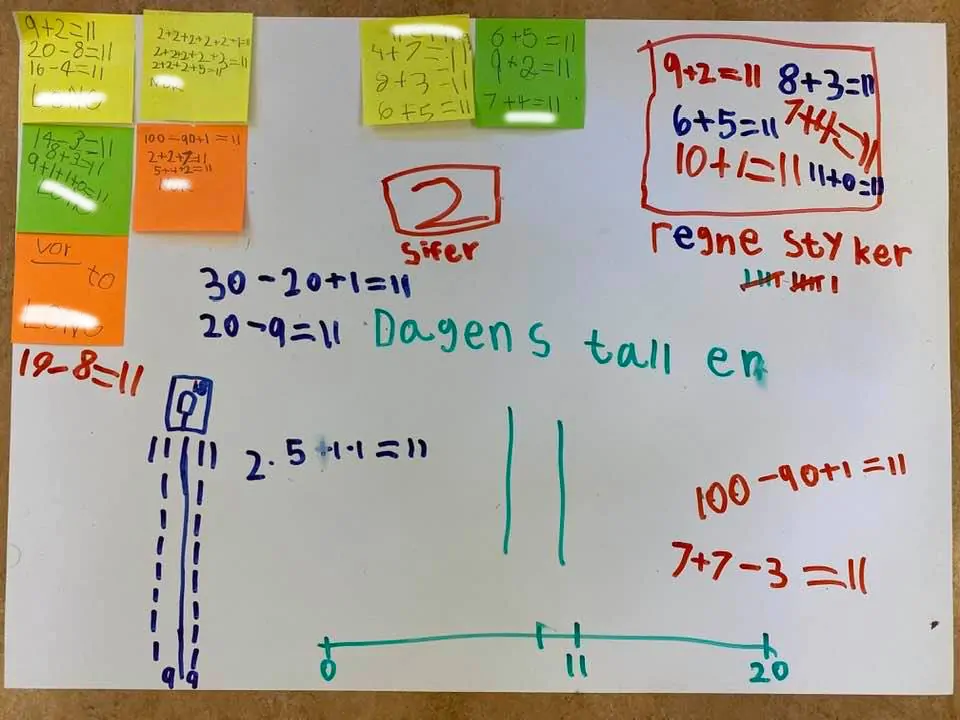 9+2=11
20-8=11
16-4=11
2+2+2+2+2+1=11
2+2+2+2+3=11
2+2+2+5=11
4+7=11
8+3=11
6+5=11
6+5=11
9+2=11
7+4=11
9+2=11 8+3=11
6+5=11 7+4=11
10+1=11 11+0=11
regne styker
14-3=11
8+3=11
9+1+1+0=11
100-90+1=11
2+2+7=11
5+4+2=11
2
sifer
vor
to
30-20+1=11
20-9=11
Dagens tall er
19-8=11
11 11
9 9
2·5+1·1=11
100-90+1=11
7+7-3=11
0 11 20